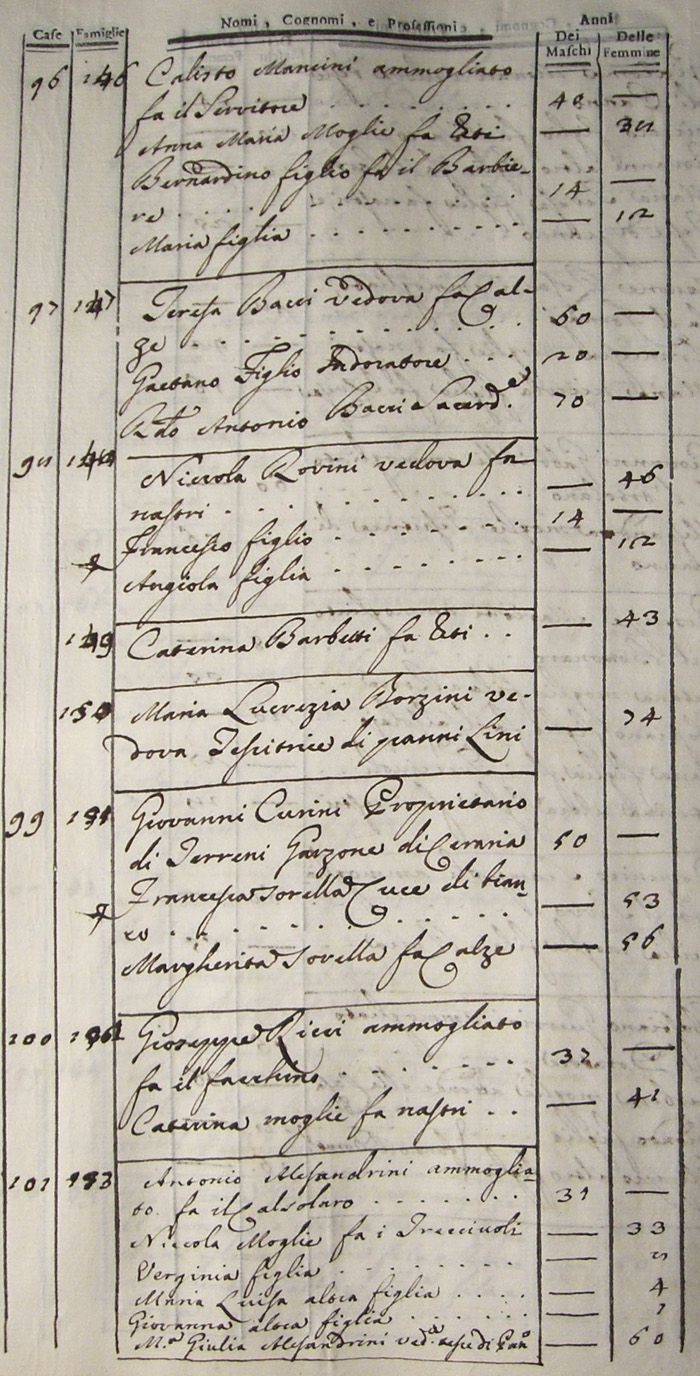 Case Famiglie Nomi, Cognomi, e Professioni Anni
Dei Maschi Delle Femmine
96 146 Calisto Mancini ammogliato
fa il Servitore . . . . . . . 40 —
Anna Maria Moglie fa — 38
Bernardino figlio fa il Barbie-
re . . . . . . . 14 —
Maria figlia . . . . . . . — 12
97 147 Teresa Bacci vedova fa Cal-
ze . . . . . . . 60 —
Gaetano Figlio Indoratore . . . 20 —
R.do Antonio Bacci Sacerd.e 70 —
98 148 Niccola Rovini vedova fa
nastri . . . . . . . — 46
Francesco figlio . . . . . . . 14 —
Angiola figlia . . . . . . . — 12
149 Caterina Barbetti fa . . — 43
150 Maria Lucrezia Borzini ve-
dova Tescitrice di panni Lini — 74
99 151 Giovanni Curini Proprietario
di Terreni Garzone di Ceraria 50 —
Francesca sorella Cuce di bian-
co . . . . . . . — 53
Margherita Sorella fa Calze — 56
100 Giuseppe Ricci ammogliato
fa il facchino . . . . . . . 37 —
Caterina moglie fa nastri . . — 41
101 153 Antonio Alesandrini ammoglia-
to fa il Calsolaro . . . . . . . 31 —
Niccola Moglie fa i Trecciuoli — 33
Verginia figlia . . . . . . . —
Maria Luisa alca figlia . . . . — 4
Giovanna alca figlia . . . . . —
M.a Giulia Alesandrini ved.a — 60